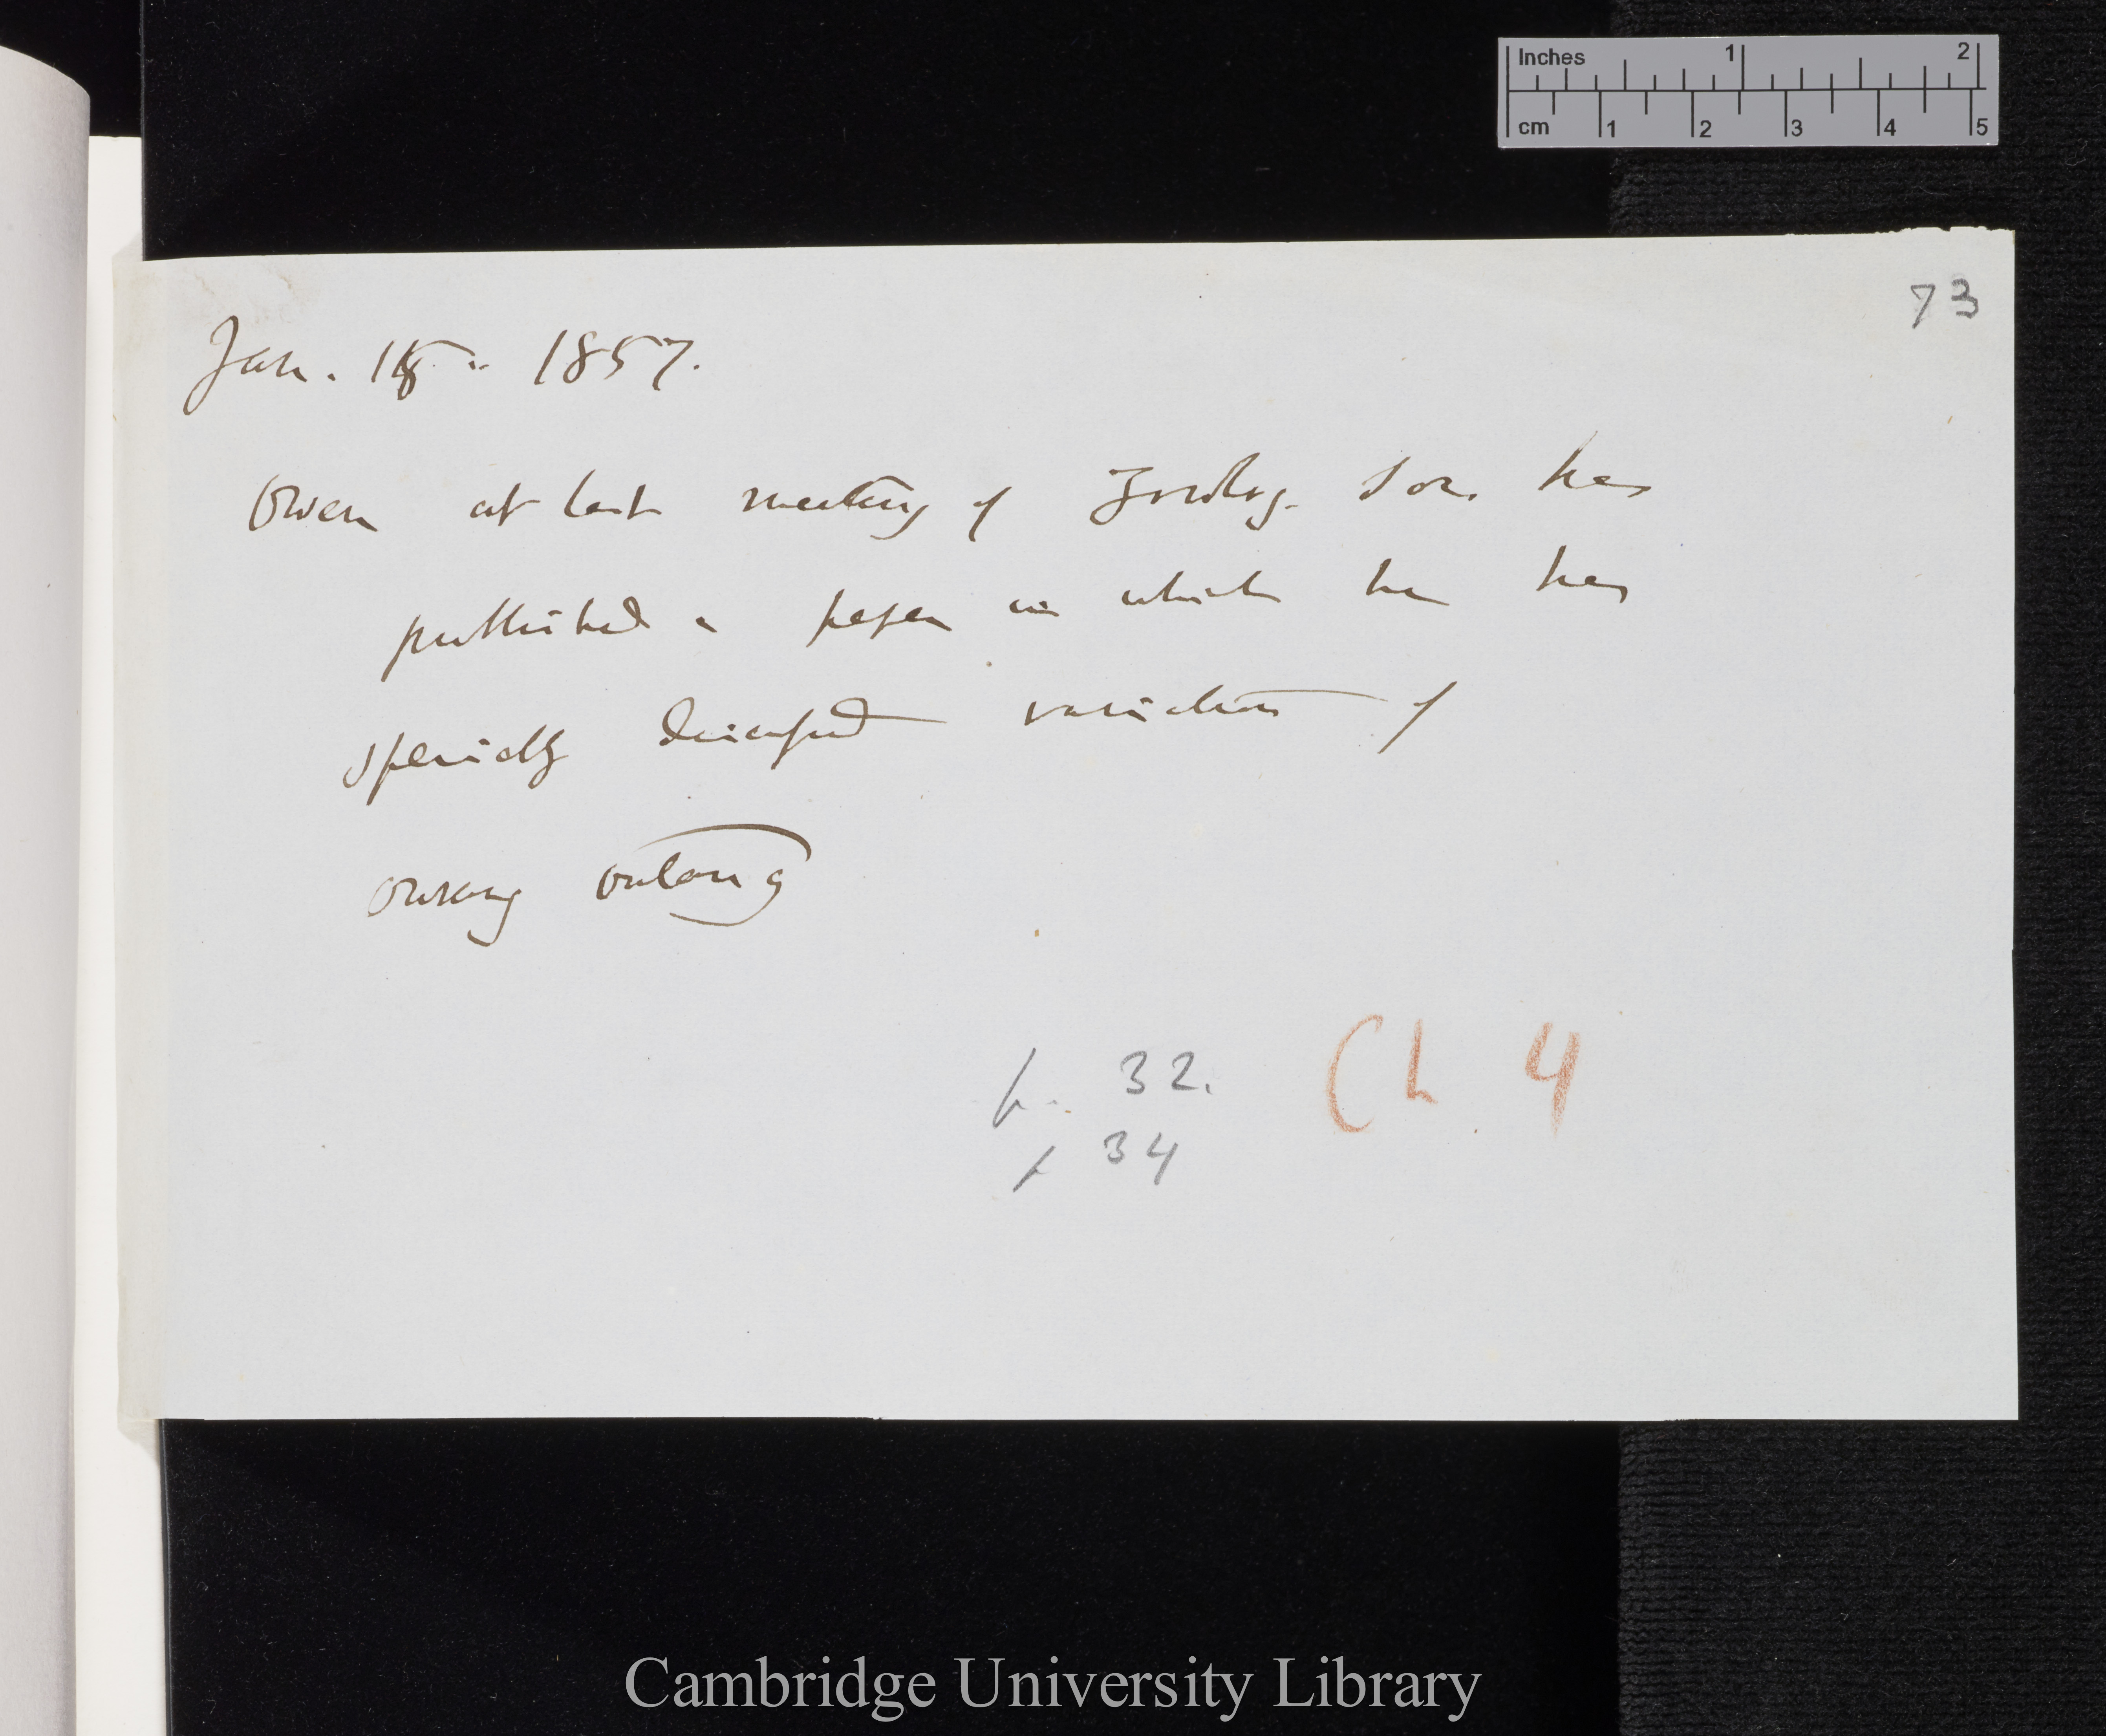 Inches 1 2
cm 1 2 3 4 5
73
Jan. 1857.
Owen at last meeting of Zoolog. Soc. has
published a paper in which he has
specially discussed variation of
Ourang Outang
p. 32. Ch 4
p 34
Cambridge University Library